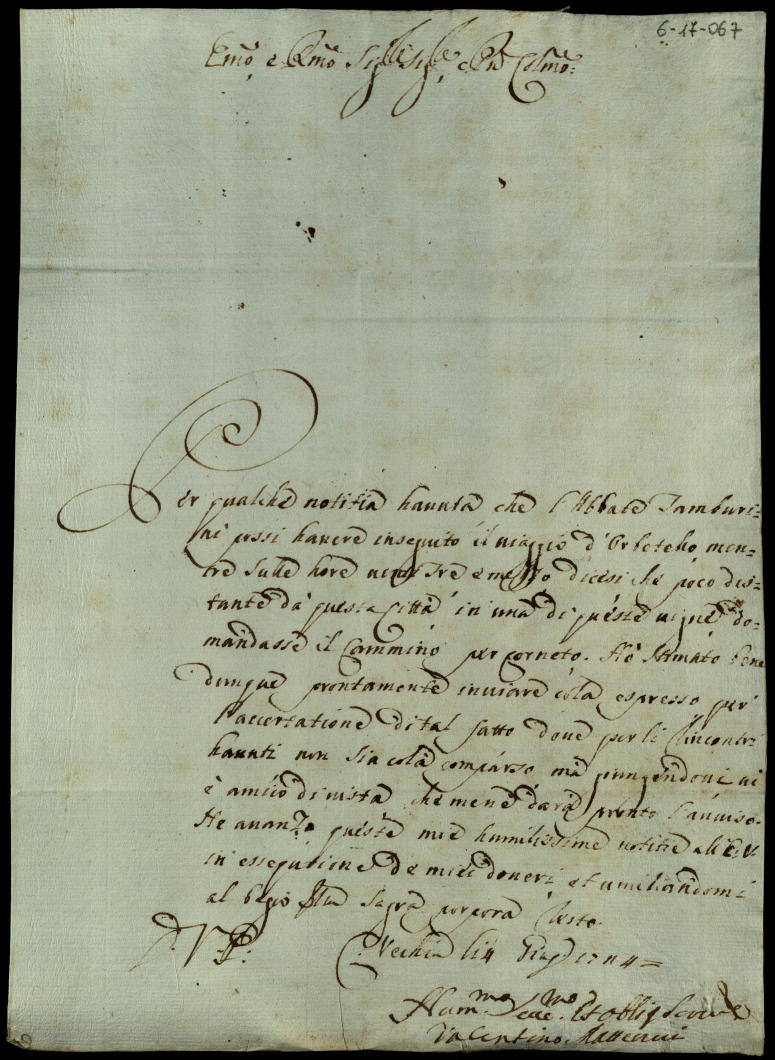 6-17-067
Emo. e Rmo Sigre Sigre, e Pne Colmo:
Per qualche notitia hauuta che l'Abbate Tamburi=
ni possi hauere inseguito il uiaggio d'Orbetello, men=
tre sulle hore uenti Tre e mezzo dicesi che poco dis=
tante da questa Città in una di queste uigne do=
mandasse il Cammino per Corneto. Hò stimato bene
dunque prontamente inuiare colà espresso per
l'accertatione di tal fatto doue per li Rincontri
hauuti non sia colà comparso mà pungendoui ui
è amico di uista che mene darà pronto l'auuiso.
Ne auanzo queste mie humilissime notitie all' E.V.
in essecutione de miei doueri et umiliandomi
al bacio della Sagra porpora resto.
D. V. E:
C. Vechia li 4
Hummo Et obligo
Valentino